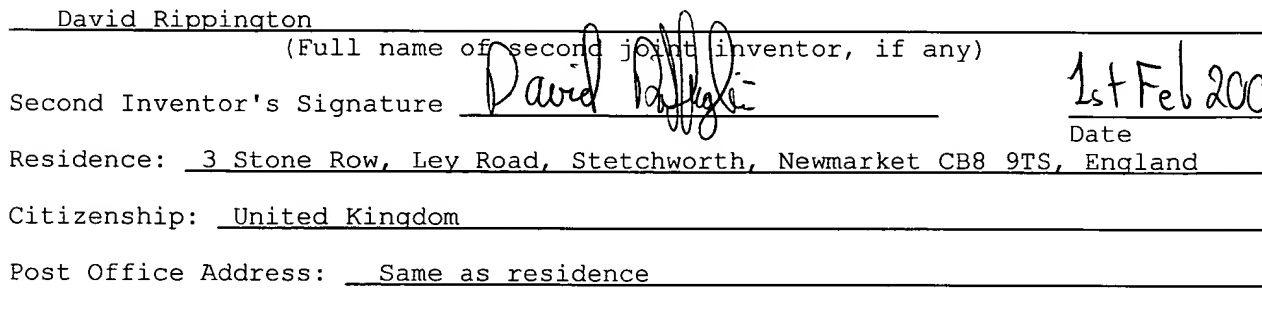 David Rippington
(Full name of second joint inventor, if any)
Second Inventor's Signature David 1st Feb
Date
Residence: 3 Stone Row, Ley Road, Stetchworth, Newmarket CB8 9TS, England
Citizenship: United Kingdom
Post Office Address: Same as residence